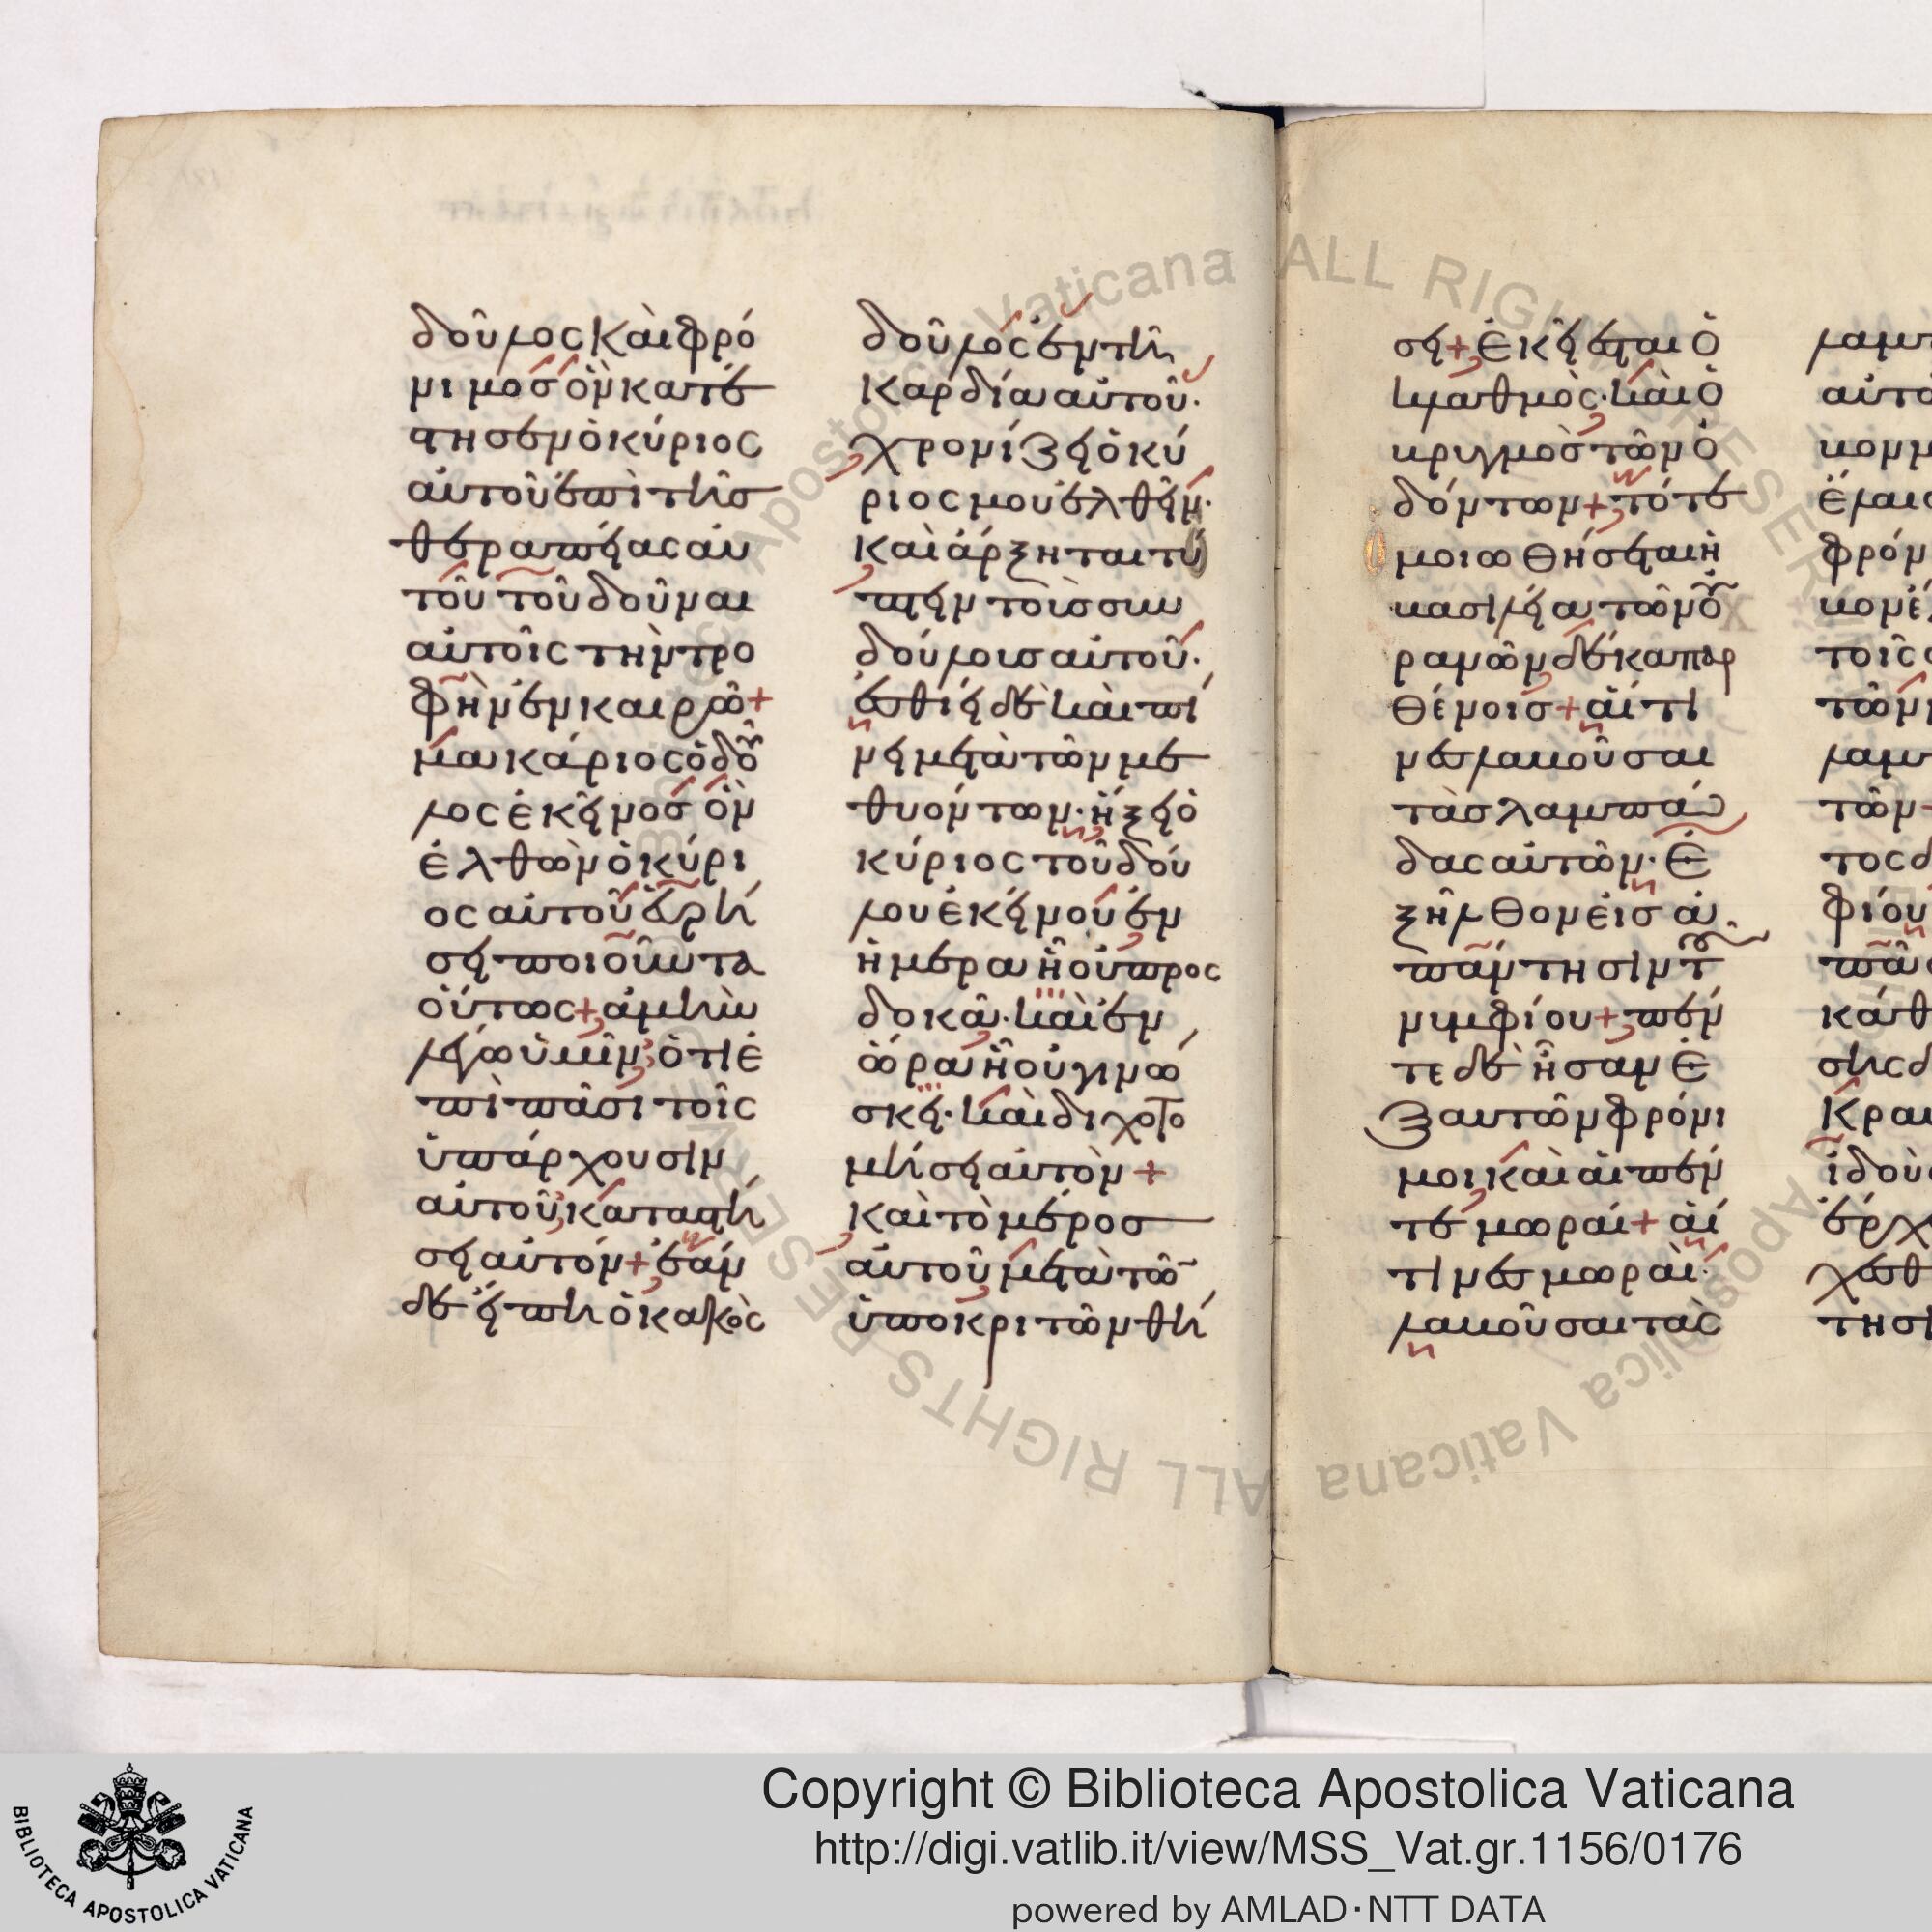 δοῦλος καὶ φρό
νιμος ὃν κατέ
στησεν ὁ κύριος
αὐτοῦ ἐπὶ τῆς
θεραπείας αὐ
τοῦ τοῦ δοῦναι
αὐτοῖς τὴν τρο
φὴν ἐν καιρῶ+
μακάριος ὁ δοῦ
λος ἐκεῖνος ὃν
ἐλθὼν ὁ κύρι
ος αὐτοῦ εὑρή
σει ποιοῦντα
οὕτως+ ἀμὴν
λέγω ὑμῖν ὅτι ἐ
πὶ πᾶσι τοῖς
ὑπάρχουσιν
αὐτοῦ καταστή
σει αὐτόν+ ἐὰν
δὲ εἴπη ὁ κακὸς
δοῦλος ἐν τῆ
καρδία αὐτοῦ·
χρονίζει ὁ κύ
ριος μου ἐλθεῖν·
καὶ ἄρξηται τύ
πτειν τοὺς συν
δούλους αὐτοῦ·
ἐσθίει δὲ καὶ πί
νει μετὰ τῶν με
θυόντων· ἥξει ὁ
κύριος τοῦ δού
λου ἐκείνου ἐν
ἡμέρα ἧ οὐ προσ
δοκᾶ· καὶ ἐν
ὥρα ἧ οὐ γινώ
σκει· καὶ διχοτο
μήσει αὐτὸν+
καὶ τὸ μέρος
αὐτοῦ μετὰ τῶ
ὑποκριτῶν θή
σει+ ἐκεῖ ἔσται ὁ
κλαυθμὸς· καὶ ὁ
βρυγμὸς τῶν ὀ
δόντων+ τότε
μοιωθήσεται ἡ
βασιλεία τῶν οὐ
ρανῶν δέκα παρ
θένοις+ αἵτι
νες λαβοῦσαι
τὰς λαμπά
δας αὐτῶν· ἐ
ξῆλθον εἰς ἀ
πάντησιν τοῦ
νυμφίου+ πέν
τε δὲ ἦσαν ἐ
ξ αὐτῶν φρόνι
μοι καὶ αἱ πέν
τε μωραί+ αἵ
τινες μωραὶ·
λαβοῦσαι τὰς
Copyright © Biblioteca Apostolica Vaticana
http://digi.vatlib.it/view/MSS_Vat.gr.1156/0176
powered by AMLAD·NTT DATA
BIBLIOTECA APOSTOLICA VATICANA